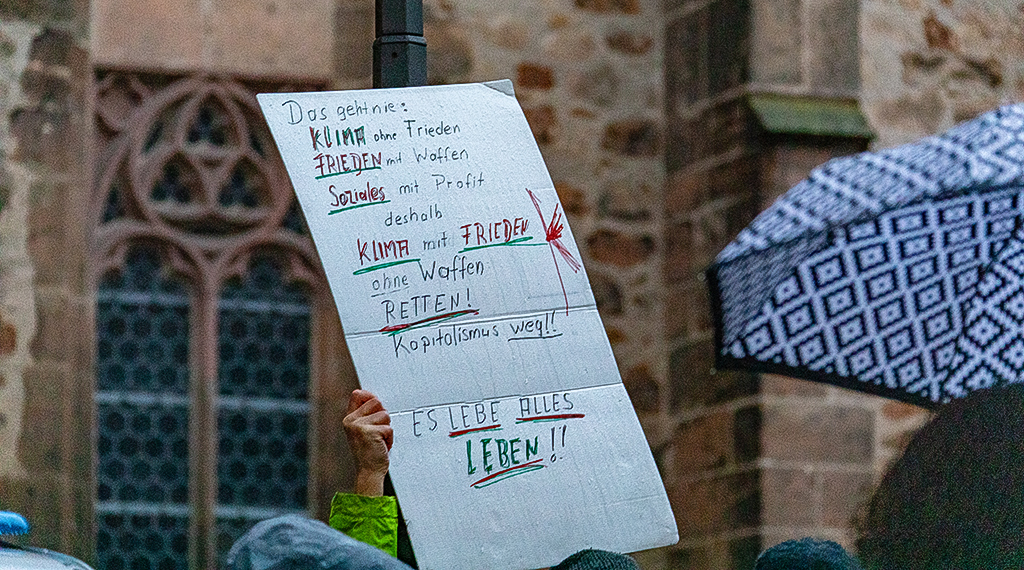 Das geht nie:
KLIMA ohne Frieden
FRIEDEN mit Waffen
Soziales mit Profit
deshalb
KLIMA mit FRIEDEN
ohne Waffen
RETTEN!
Kapitalismus weg!!
ES LEBE ALLES
LEBEN!!